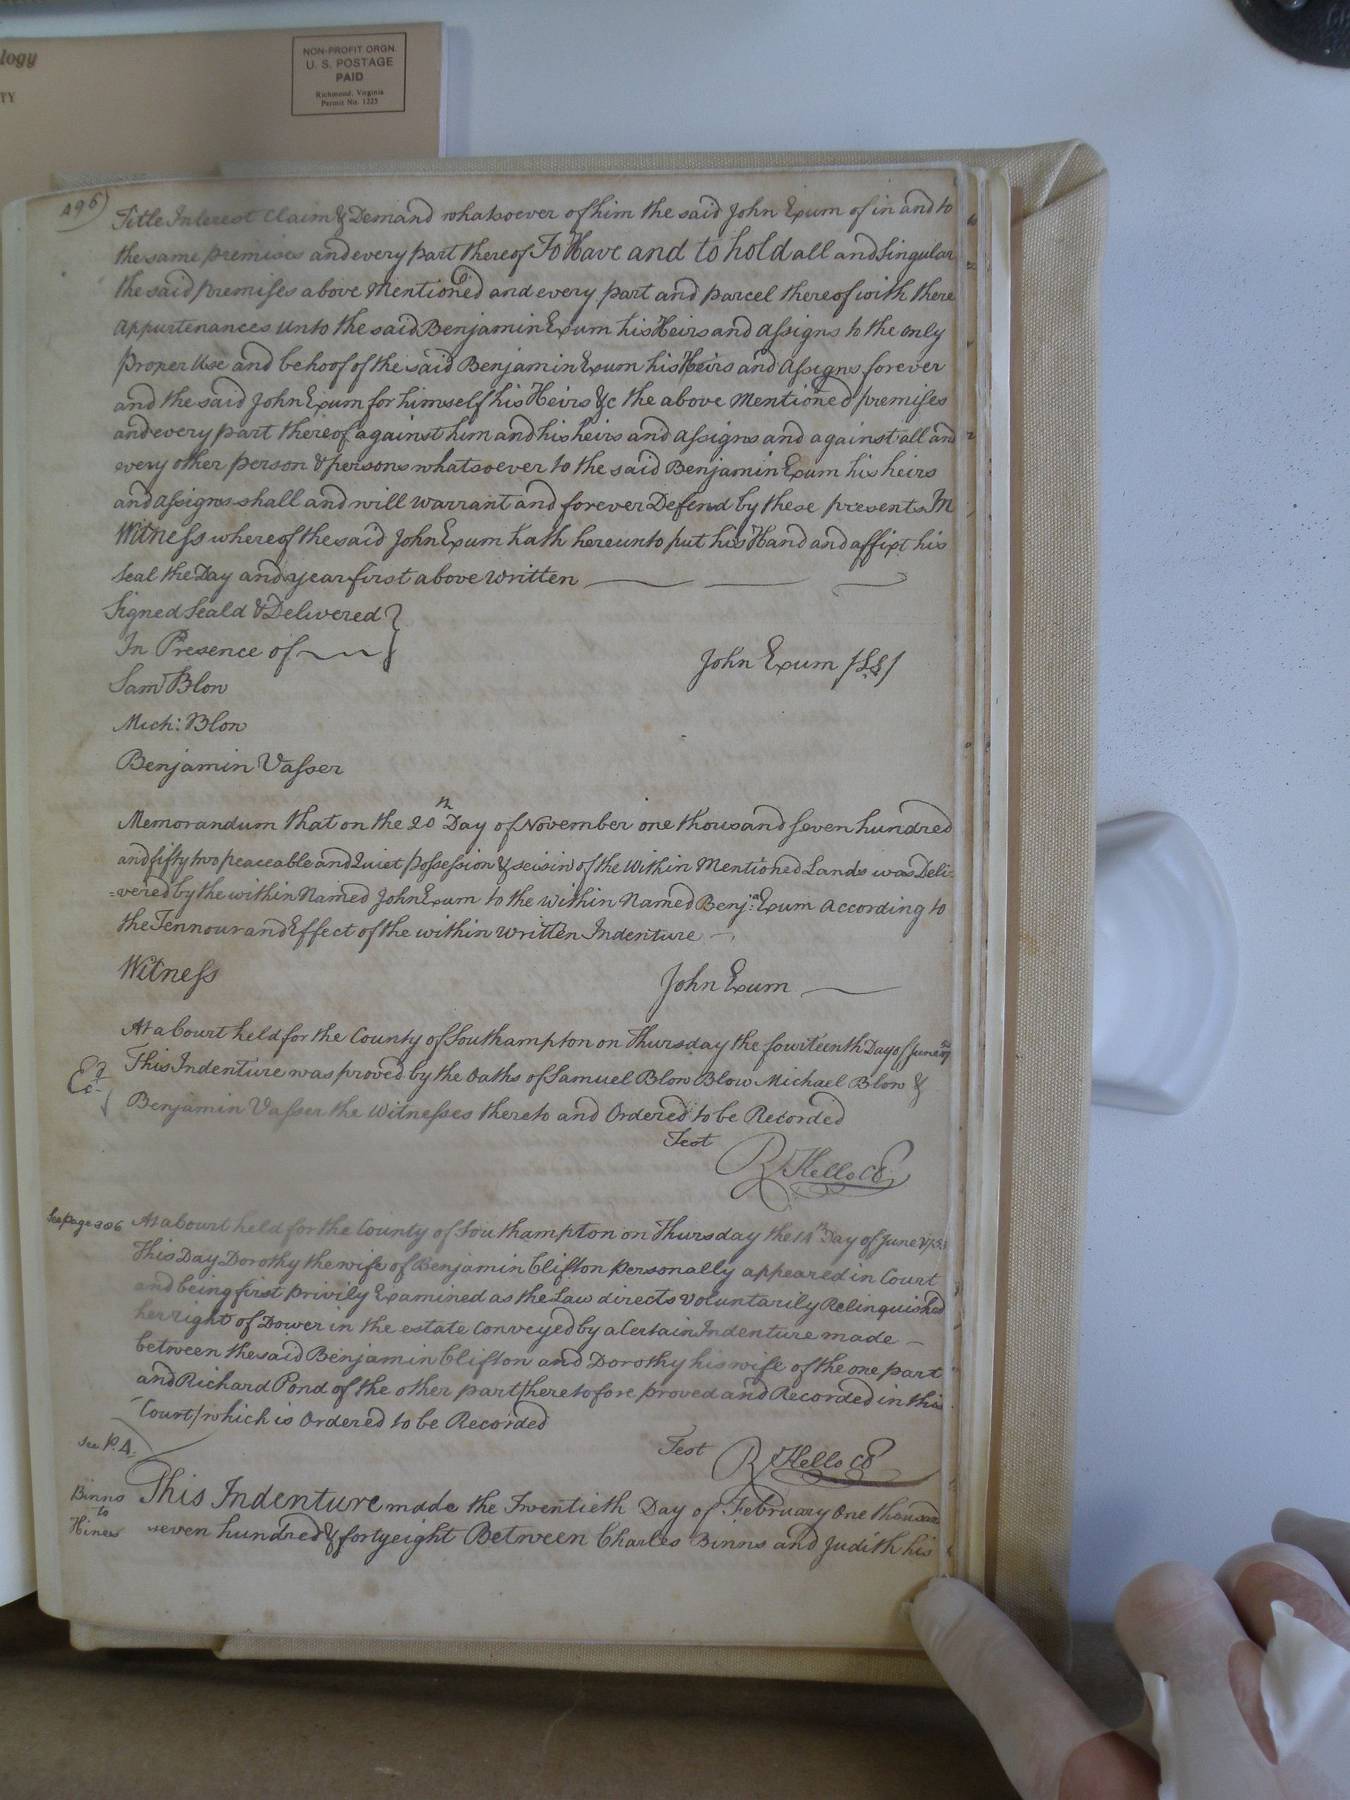 logy
TY
NON-PROFIT ORGN.
U. S. POSTAGE
PAID
Richmond, Virginia
Permit No. 1225
496)
Title Interest Claim & Demand whatsoever of him the said John Exum of in and to
the same premises and every part thereof To Have and to hold all and Singular
the said premises above Mentioned and every part and parcel thereof with there
appurtenances unto the said Benjamin Exum his Heirs and assigns to the only
proper Use and behoof of the said Benjamin Exum his Heirs and assigns forever
and the said John Exum for himself his Heirs &c the above Mentioned premises
and every part thereof against him and his heirs and assigns and against all and
every other person & persons whatsoever to the said Benjamin Exum his heirs
and assigns shall and will warrant and forever Defend by these presents In
Witness whereof the said John Exum hath hereunto put his Hand and affixt his
seal the Day and year first above written
Signed Seald & Delivered
In Presence of
John Exum (LS)
Sam Blow
Mich: Blow
Benjamin Vasser
Memorandum that on the 20th Day of November one thousand seven hundred
and fifty two peaceable and Quiet possession & seisin of the within Mentioned Lands was Deli-
=vered by the within Named John Exum to the within Named Benja: Exum according to
the Tennour and Effect of the within written Indenture
Witness
John Exum
At a Court held for the County of Southampton on Thursday the fourteenth Day of June
This Indenture was proved by the Oaths of Samuel Blow Blow Michael Blow &
Benjamin Vasser the Witnesses thereto and Ordered to be Recorded
Test
R Kello CC
See page 306
At a Court held for the County of Southampton on Thursday the 14th Day of June
This Day Dorothy the wife of Benjamin Clifton personally appeared in Court
and being first privily Examined as the Law directs voluntarily Relinquished
her right of Dower in the estate Conveyed by a Certain Indenture made
between the said Benjamin Clifton and Dorothy his wife of the one part
and Richard Pond of the other part (heretofore proved and Recorded in this
Court) which is Ordered to be Recorded
Test R Kello CC
See P. A.
Binns
to
Hines
This Indenture made the Twentieth Day of February One thousand
seven hundred & forty eight Between Charles Binns and Judith his